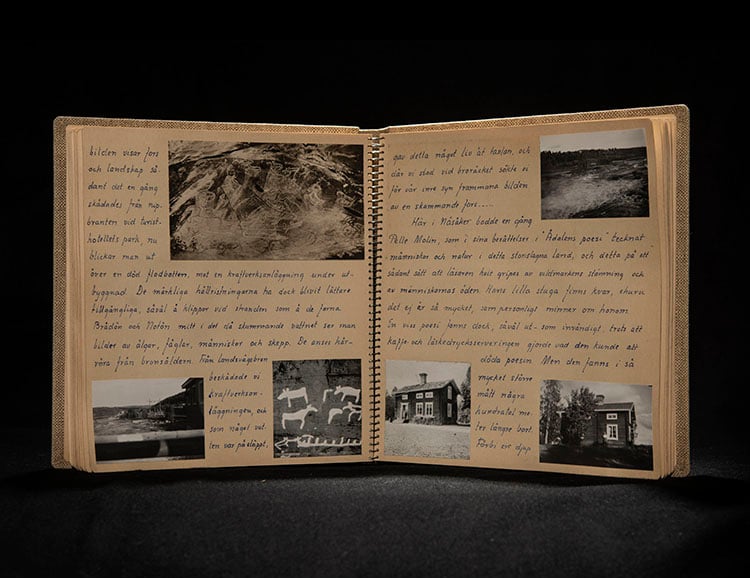 bilden visar fors
och landskap så-
damt det en gång
skådades från nip-
branten vid turist-
hotellets park, nu
blickar man ut
över en död flodbotten, mot en kraftverksanläggning under ut-
byggnad. De märkliga hällristningarna ha dock blivit lättare
tillgängliga, såväl å klippor vid stranden som å de forna
Brådön och Notön mitt i det då skummande vattnet ser man
bilder av älgar, fåglar, människor och skepp. De anses här-
röra från bronsåldern. Från landsvägsbron
beskådade vi
kraftverksan-
läggningen, och
som något vat-
ten var påsläppt,
gav detta något liv åt tavlan, och
där vi stod vid broräcket sökte vi
för vår inre syn frammana bilden
av en skummande fors.....
Här i Näsåker bodde en gång
Pelle Molin, som i sina berättelser i "Ådalens poesi" tecknat
människor och natur i detta storslagna land, och detta på ett
sådant sätt att läsaren helt gripes av vildmarkens stämning och
av människornas öden. Hans lilla stuga finns kvar, ehuru
det ej är så mycket, som personligt minner om honom.
En viss poesi fanns dock, såväl ut- som invändigt, trots att
kaffe och läskedrycksserveringen gjorde vad den kunde att
döda poesin. Men den fanns i så
mycket större
mått några
hundratal me-
ter längre bort.
Förbi en djup